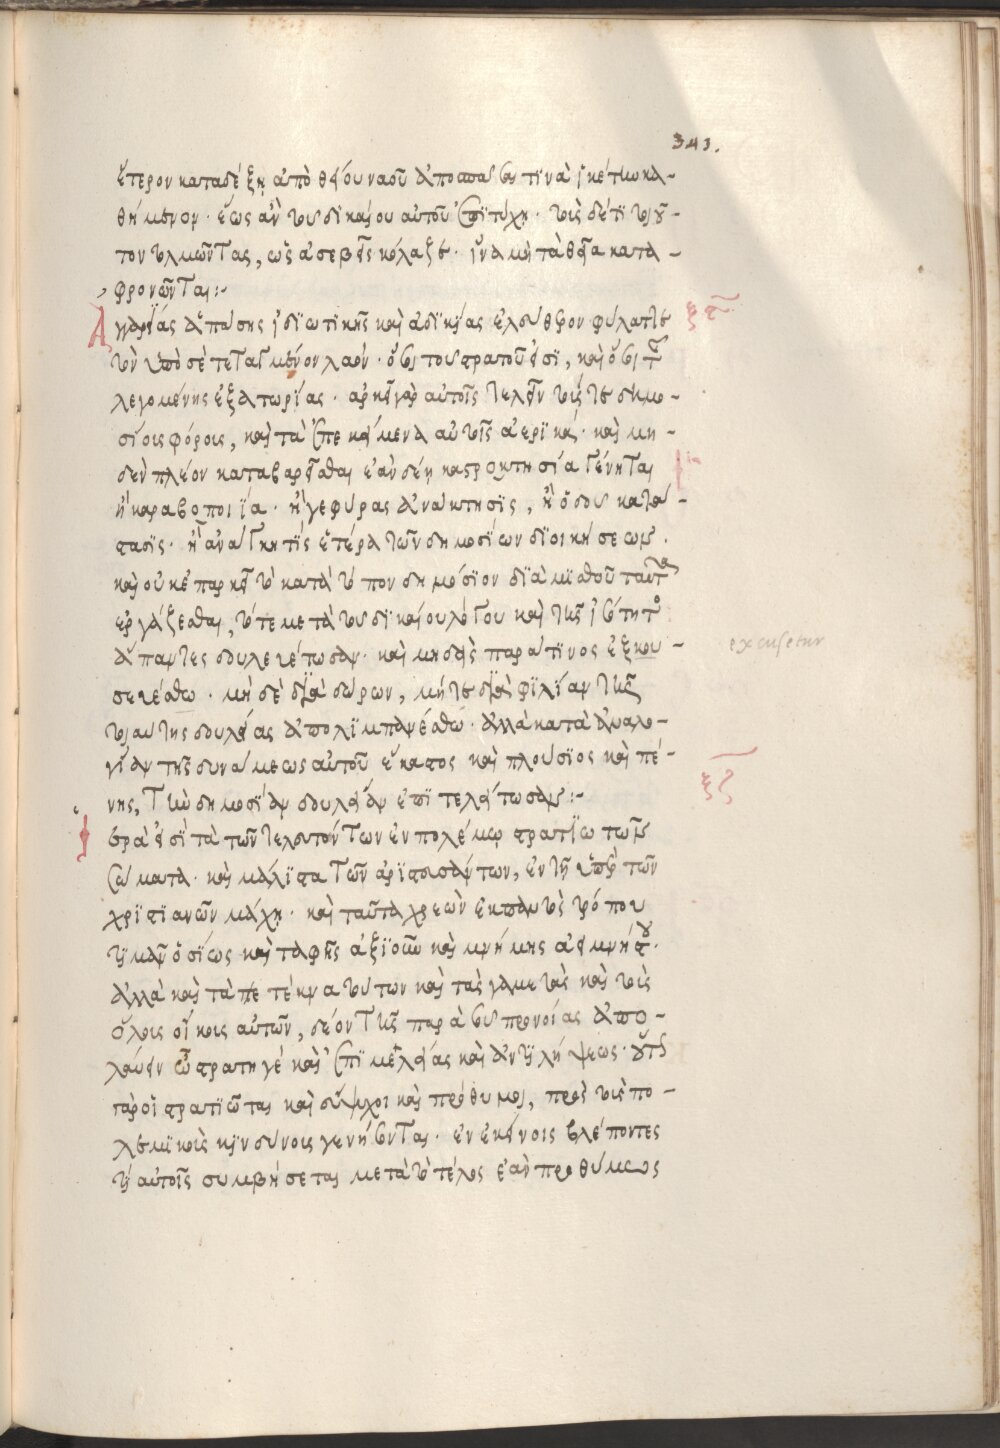 343.
ἕτερον καταδέξῃ ἀπὸ θείου ναοῦ ἀποσπάσαι τινὰ ἱκέτην κα-
θήμενον· ἕως ἂν τοῦ δικαίου αὐτοῦ ἐπιτύχῃ· τοὺς δέ τι τοιοῦ-
τον τολμῶντας, ὡς ἀσεβεῖς κόλαζε· ἵνα μὴ τὰ θεῖα κατα-
φρονῶνται:-
Ἀγγαρείας ἁπάσης ἰδιωτικῆς καὶ ἀδικίας ἐλεύθερον φύλαττε
τὸν ὑπὸ σὲ τεταγμένον λαόν· ὅσοι τοῦ στρατοῦ εἰσι, καὶ ὅσοι τῆς
λεγομένης ἐξατωρίας· ἀρκεῖ γὰρ αὐτοῖς τελεῖν τοῖς τε δημο-
σίοις φόροις, καὶ τὰ ἐπικείμενα αὐτοῖς ἀερικά· καὶ μη-
δὲν πλέον καταβαρεῖσθαι ἐὰν δέῃ καστροκτησία γένηται
ἢ καραβοποιία· ἢ γεφύρας ἀνάκτησις, ἢ ὁδοῦ κατά-
στασις· ἢ ἀνάγκη τις ἑτέρα τῶν δημοσίων διοικήσεων.
καὶ οὐκ ἐπαρκεῖ τὸ κατὰ τόπον δημόσιον διὰ μισθοῦ ταῦτα
ἐργάζεσθαι, τότε μετὰ τοῦ δικαίου λόγου καὶ τῆς ἰσότητος
ἅπαντες δουλευέτωσαν· καὶ μηδεὶς παρά τινος ἐξκου-
σευέσθω· μὴ δὲ διὰ δώρων, μήτε διὰ φιλίαν τῆς
τοιαύτης δουλείας ἀπολιμπανέσθω· ἀλλὰ κατὰ ἀναλο-
γίαν τῆς δυνάμεως αὐτοῦ ἕκαστος καὶ πλούσιος καὶ πέ-
νης, τὴν δημοσίαν δουλείαν ἐπιτελείτωσαν:-
Ἱερὰ εἰσὶ τὰ τῶν τελευτόντων ἐν πολέμῳ στρατιωτῶν
σώματα· καὶ μάλιστα τῶν ἀριστευσάντων, ἐν τῇ ὑπὲρ τῶν
χριστιανῶν μάχῃ· καὶ ταῦτα χρεὼν ἐκ παντὸς τρόπου
τιμᾶν ὁσίως καὶ ταφῆς ἀξιοῦν καὶ μνήμης ἀειμνήστου·
ἀλλὰ καὶ τὰ τέκνα τούτων καὶ τὰς γαμετὰς καὶ τοὺς
ὅλοις οἴκοις αὐτῶν, δέον τῆς παρὰ σοῦ προνοίας ἀπο-
λαύειν ὦ στρατηγέ καὶ ἐπιμελείας καὶ ἀντιλήψεως· οὕτω
γὰρ οἱ στρατιῶται καὶ εὔψυχοι καὶ πρόθυμοι, πρὸς τοὺς πο-
λεμικοὺς κινδύνοις γενήσονται· ἐν ἐκείνοις βλέποντες
τί αὐτοῖς συμβήσεται μετὰ τὸ τέλος ἐὰν προθύμως
excusetur
ξζ